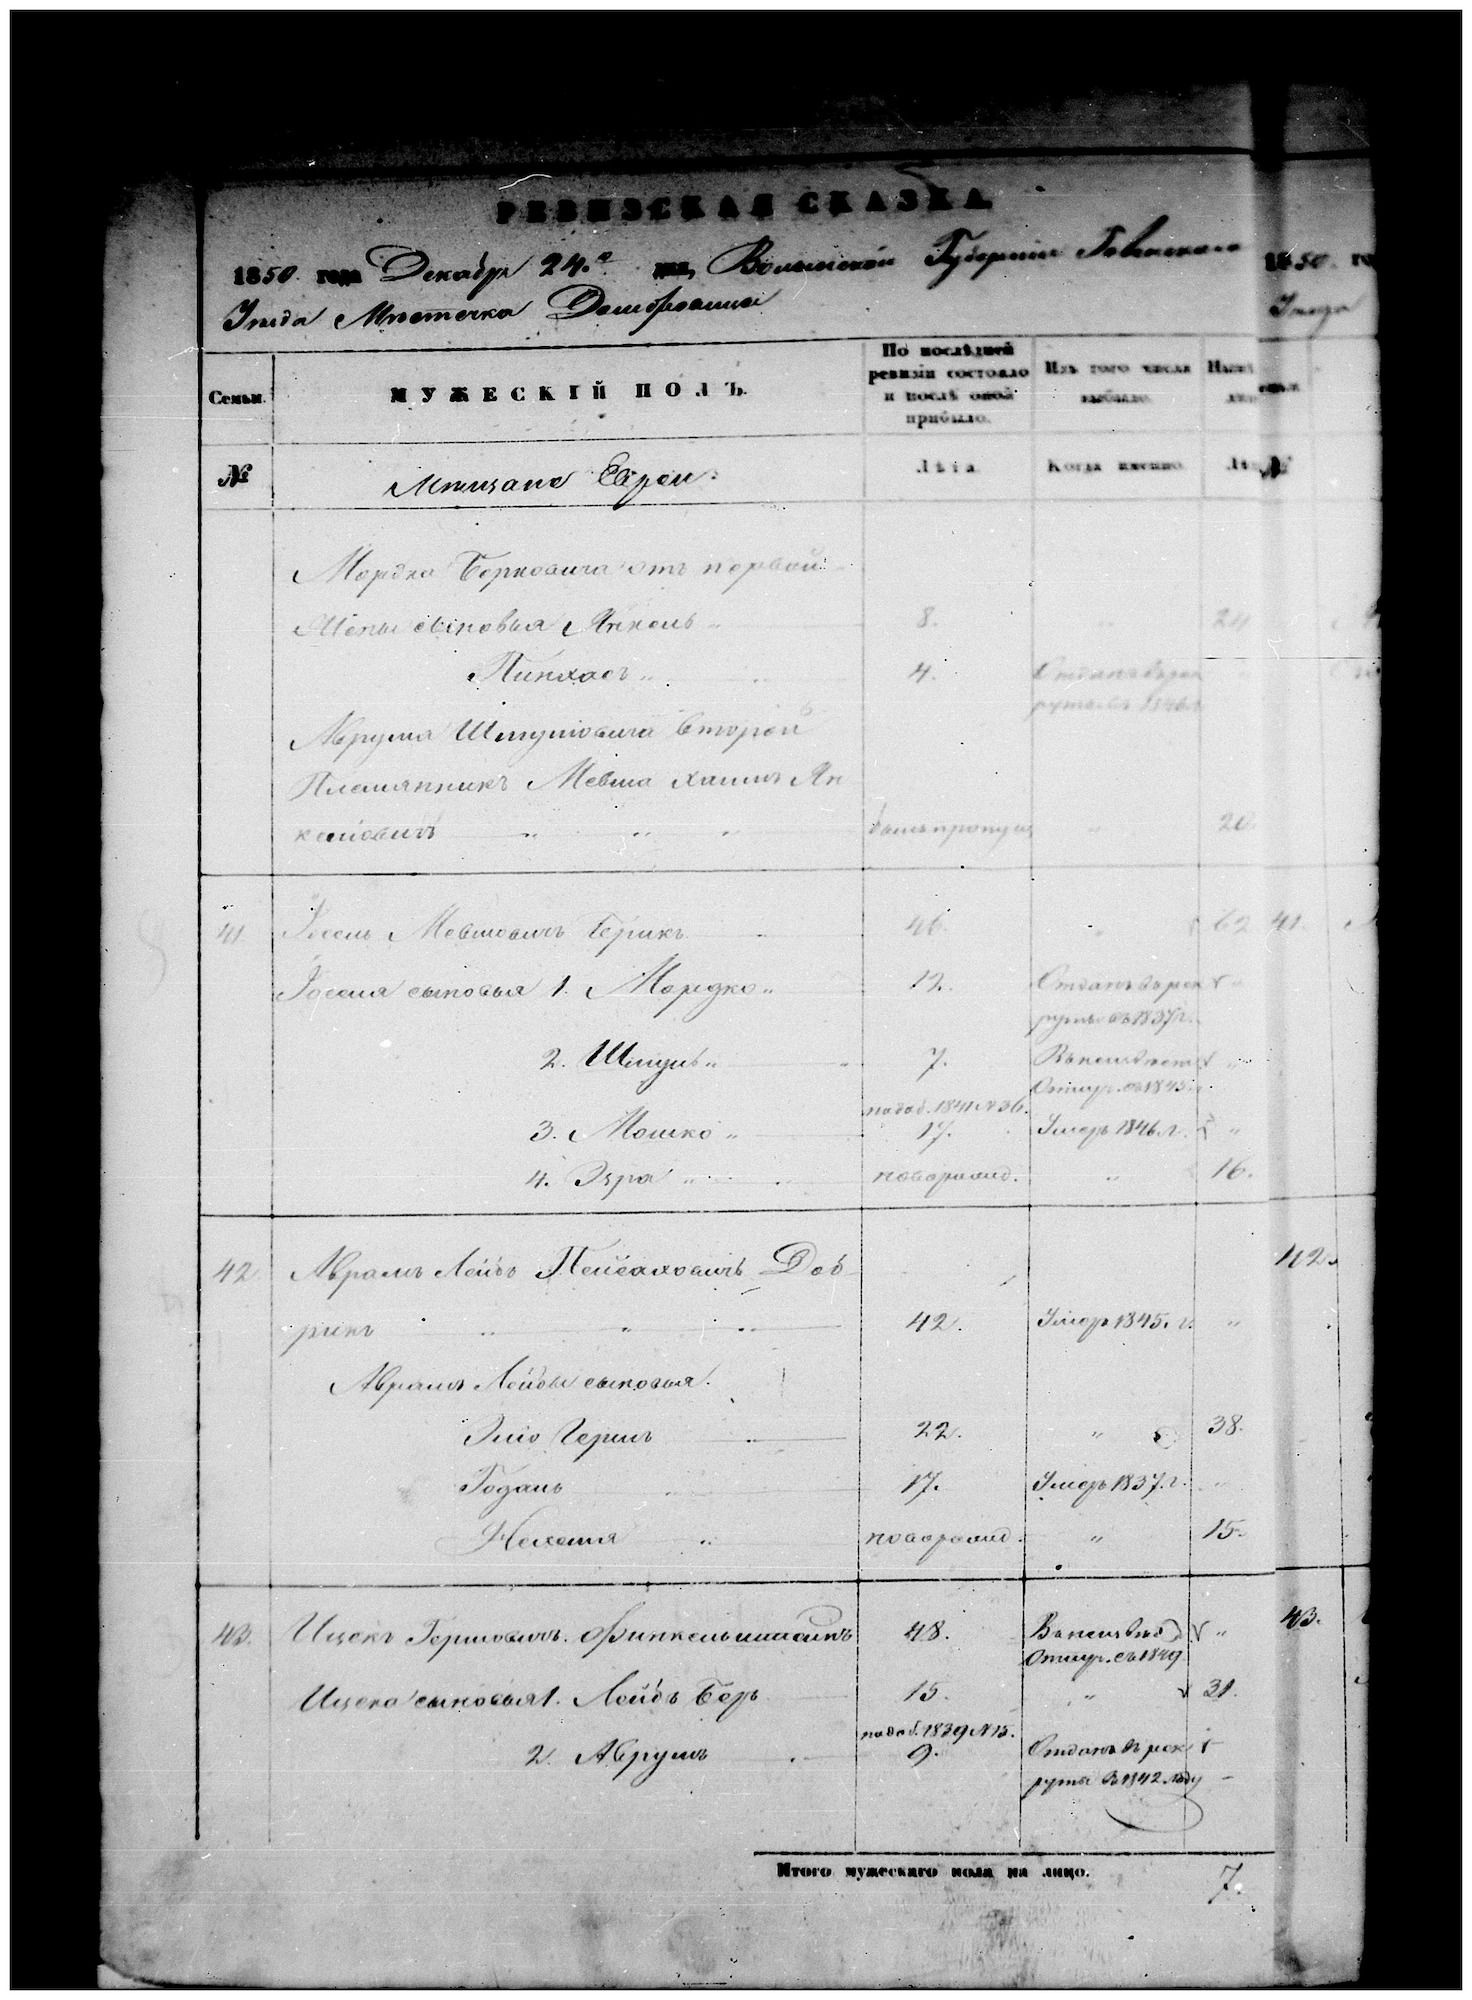 РЕВИЗСКАЯ СКАЗКА.
1850 года Декабря 24.го дня, Волынской Губерніи Ровенскаго
Уѣзда Мѣстечка Домбровицы
1850. го
Уѣзда
Семьи.
МУЖЕСКІЙ ПОЛЪ.
По послѣдней ревизіи состояло и послѣ оной прибыло.
Изъ того числа выбыло.
Нынѣ
№
Мѣщане Евреи.
Лѣта.
Когда именно.
Лѣта
Мордка Берковича отъ первой
Жены сыновья Янкель „
8.
„
24
Пинхасъ „
4.
Отданъ въ рек
руты въ 1846 г.
Аврума Шмуловича второй
Племянникъ Мевша Хаимъ Ян
келіовичъ „ „ „
былъ пропущ
„
20.
41.
Іосель Мевшовичъ Берикъ
46.
„
62
41.
Іоселя сыновья 1. Мордко „
12.
Отданъ въ рек
руты въ 1837 г.
„
2. Шмуль „
7.
Въ неизвѣст
Отлуч. съ 1845 г.
„
3. Мошко „
по доб. 1841 № 36.
17.
Умеръ 1846. г.
„
4. Эзра „
новорожд.
„
16.
42.
Аврамъ Лейба Пейсаховичъ Доб
42.
рикъ „ „ „
42.
Умеръ 1845. г.
„
Аврамъ Лейбы сыновья.
Эліо Гершъ
22.
„
38.
Годаль
17.
Умеръ 1837. г.
„
Нехемія „
новорожд.
„
15.
43.
Ицекъ Гершовичъ Финкельштейнъ
48.
Въ неизвѣс
Отлуч. съ 1849
„
43.
Ицека сыновья 1. Лейбъ Беръ
15.
„
31.
2. Аврумъ
по доб. 1839 № 15.
9.
Отданъ въ рек
руты въ 1842 году
Итого мужескаго пола на лицо.
7.